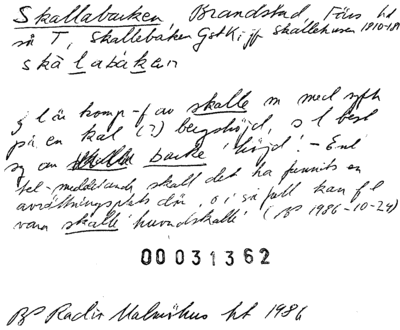 Skallabacken, Brandstad, Färs hd
så T, skallebacken GstK; jfr skallehusen 1910-12
skálabákan
lär komp-f av skalle m med syft
på en kal (?) bergshöjd, s l best
sg av backe 'höjd'. – Enl
tel-meddelande skall det ha funnits en
avrättningsplats där, o i så fall kan fl
vara skalle 'huvudskalle' (BP 1986-10-24)
00031362
BP Radio Malmöhus ht 1986